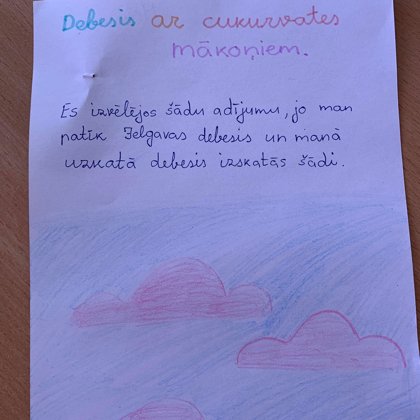 Debesis ar cukurvates
mākoņiem.
Es izvēlējos šādu adījumu, jo man
patīk Jelgavas debesis un manā
uzkatā debesis izskatās šādi.